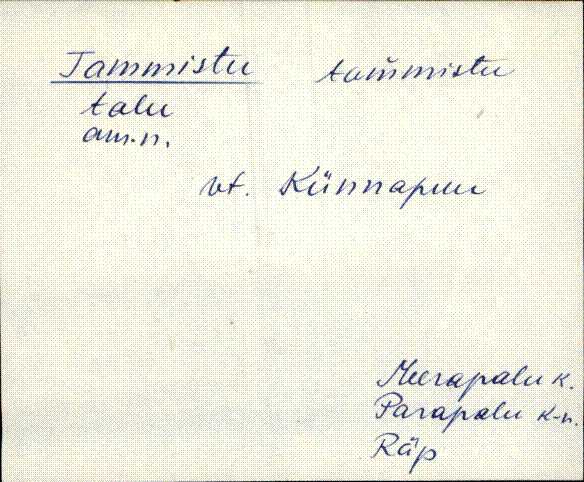 Tammistu tam̆mistu
talu
am.n.
vt. Künnapuu
Meerapalu k.
Parapalu k-n.
Räp